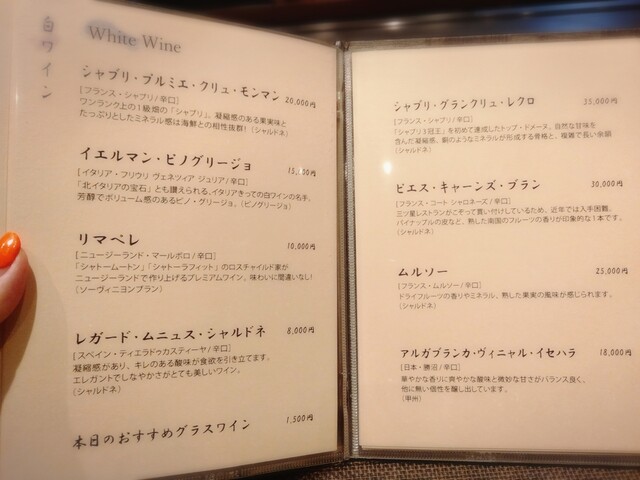 白ワイン
White Wine
シャブリ・プルミエ・クリュ・モンマン 20,000円
[フランス・シャブリ/辛口]
ワンランク上の1級畑の「シャブリ」。凝縮感のある果実味と
たっぷりとしたミネラル感は海鮮との相性抜群!(シャルドネ)
イエルマン・ピノグリージョ 15,000円
[イタリア・フリウリ ヴェネツィア ジュリア/辛口]
「北イタリアの宝石」とも讃えられる、イタリアきっての白ワインの名手。
芳醇でボリューム感のあるピノ・グリージョ。(ピノグリージョ)
リマペレ 10,000円
[ニュージーランド・マールボロ/辛口]
「シャトームートン」「シャトーラフィット」のロスチャイルド家が
ニュージーランドで作り上げるプレミアムワイン。味わいに間違いなし!
(ソーヴィニヨンブラン)
レガード・ムニュス・シャルドネ 8,000円
[スペイン・ティエラドゥカスティーヤ/辛口]
凝縮感があり、キレのある酸味が食欲を引き立てます。
エレガントでしなやかさがとても美しいワイン。
(シャルドネ)
本日のおすすめグラスワイン 1,500円
シャブリ・グランクリュ・レクロ 35,000円
[フランス・シャブリ/辛口]
「シャブリ3冠王」を初めて達成したトップ・ドメーヌ。自然な甘味を
含んだ凝縮感、鋼のようなミネラルが形成する骨格と、複雑で長い余韻
(シャルドネ)
ピエス・キャーンズ・ブラン 30,000円
[フランス・コート シャロネーズ/辛口]
三ツ星レストランがこぞって買い付けしているため、近年では入手困難。
パイナップルの皮など、熟した南国のフルーツの香りが印象的な1本です。
(シャルドネ)
ムルソー 25,000円
[フランス・ムルソー/辛口]
ドライフルーツの香りやミネラル、熟した果実の風味が感じられます。
(シャルドネ)
アルガブランカ・ヴィニャル・イセハラ 18,000円
[日本・勝沼/辛口]
華やかな香りに爽やかな酸味と微妙な甘さがバランス良く、
他に無い個性を醸し出しています。
(甲州)